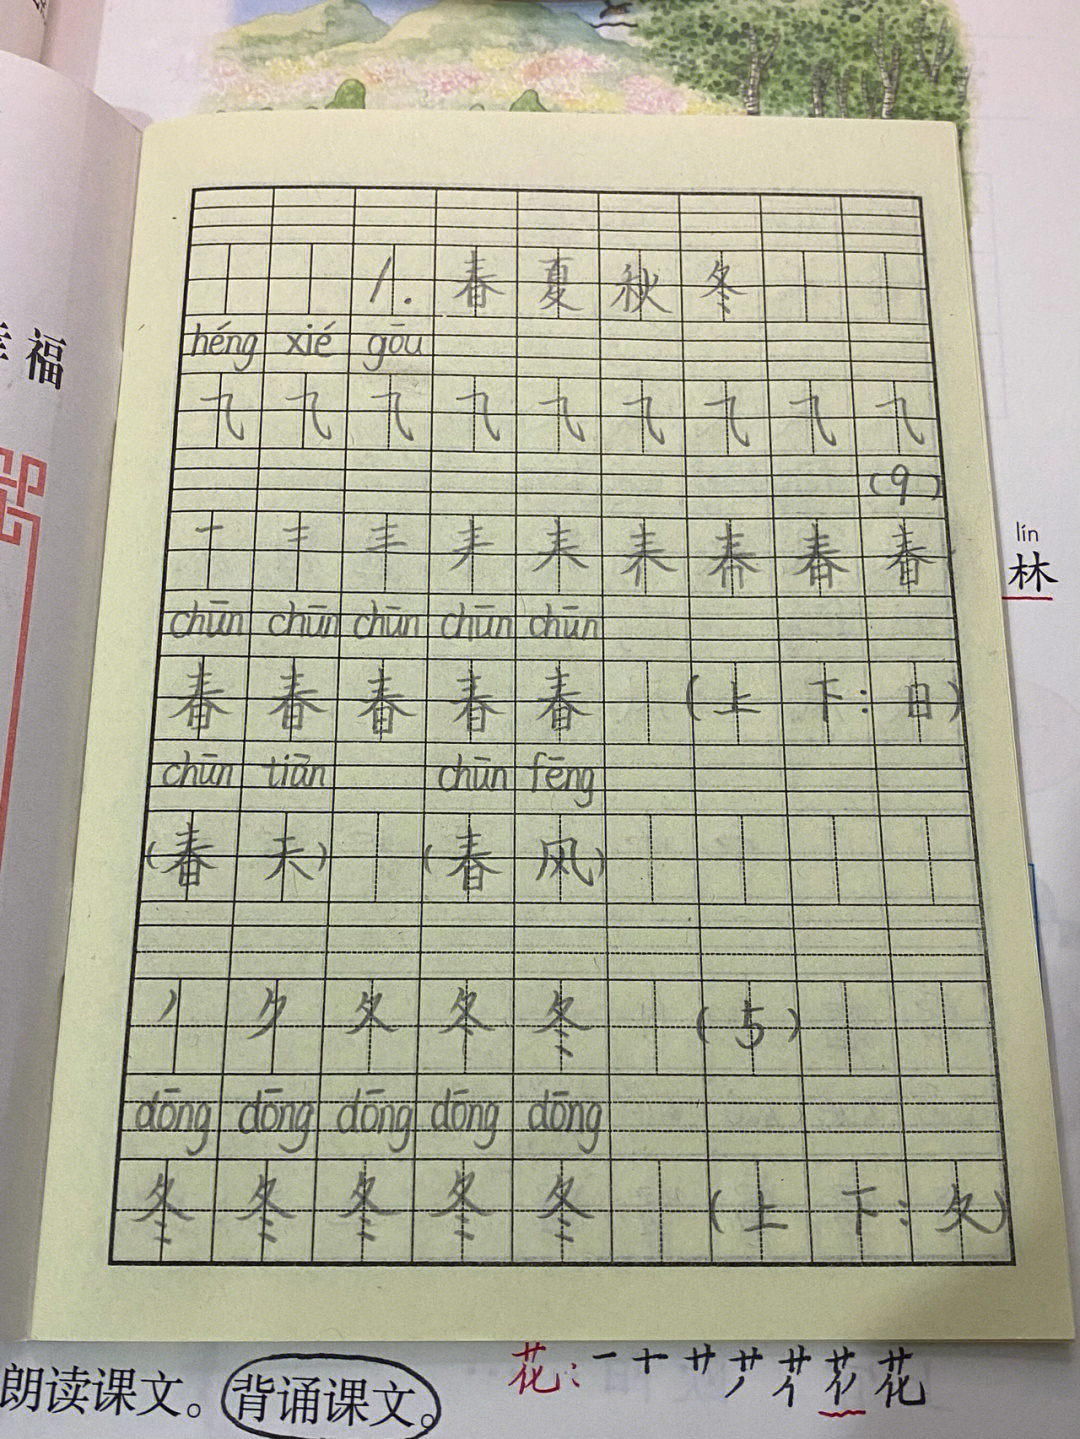 福
1. 春夏秋冬
héng xié gōu
⺄ ⺄ ⺄ ⺄ ⺄ ⺄ ⺄ ⺄ ⺄
(9)
一 二 三 春
chūn chūn chūn chūn chūn
春 春 春 春 春 (上下:日)
chūn tiān chūn fēng
(春天) (春风)
丿 夕 夂 冬 冬 (5)
dōng dōng dōng dōng dōng
冬 冬 冬 冬 冬 (上下:夂)
lín
林
朗读课文。背诵课文。
花: 一 十 艹 花